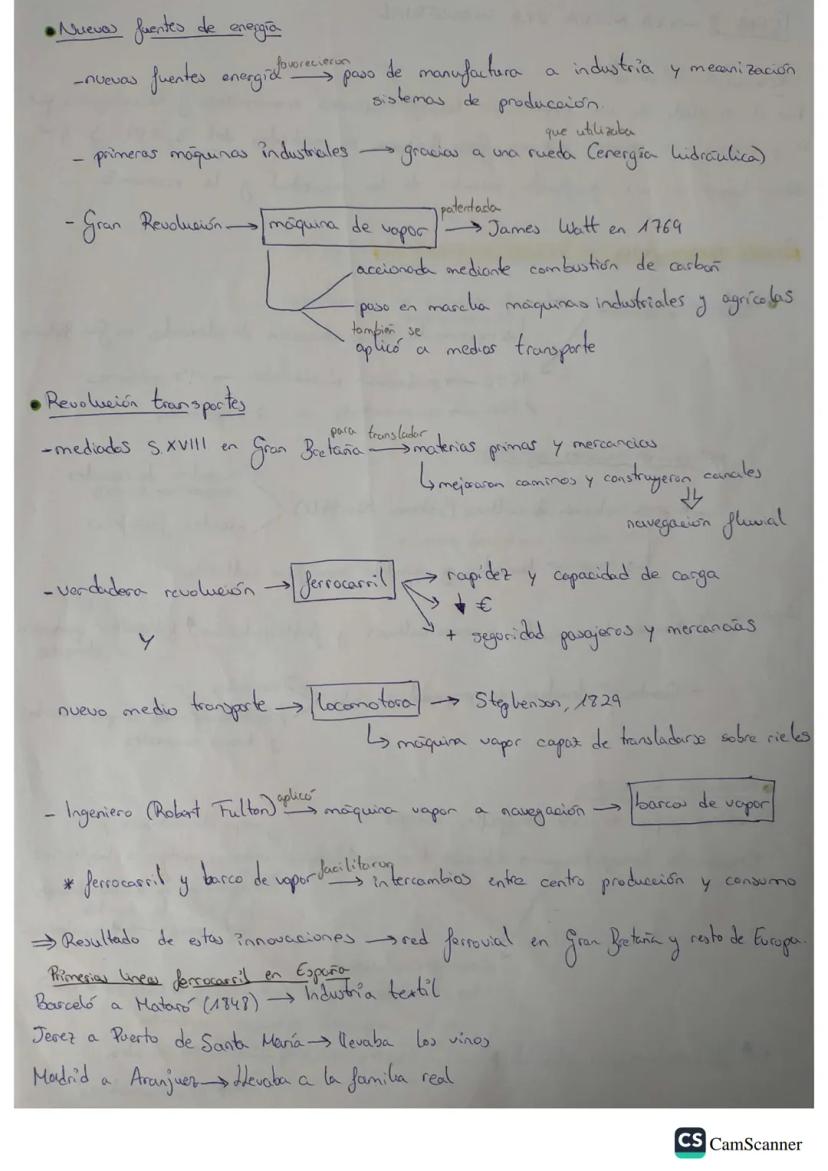 • Nuevas fuentes de energía
-nuevas fuentes energía favorecieron → paso de manufactura a industria y mecanización
sistemas de producción.
- primeras máquinas industriales → gracias a una rueda que utilizaba (energía hidráulica)
- Gran Revolución → máquina de vapor patentada → James Watt en 1769
accionada mediante combustión de carbón
puso en marcha máquinas industriales y agrícolas
también se
aplicó a medios transporte
• Revolución transportes
-mediados S.XVIII en Gran Bretaña para transladar → materias primas y mercancias
↳ mejoraron caminos y construyeron canales
⇓
navegación fluvial
- verdadera revolución → ferrocarril → rapidez y capacidad de carga
→ ↓ €
→ + seguridad pasajeros y mercancías
y
nuevo medio transporte → locomotora → Stephenson, 1829
↳ máquina vapor capaz de transladarse sobre rieles
- Ingeniero (Robert Fulton) aplicó → máquina vapor a navegación → barcos de vapor
* ferrocarril y barco de vapor facilitaron → intercambios entre centro producción y consumo
⇒ Resultado de estas innovaciones → red ferrovial en Gran Bretaña y resto de Europa.
Primerias lineas ferrocarril en España
Barceló a Mataró (1848) → Industria textil
Jerez a Puerto de Santa María → llevaba los vinos
Madrid a Aranjuez → llevaba a la familia real
CS CamScanner